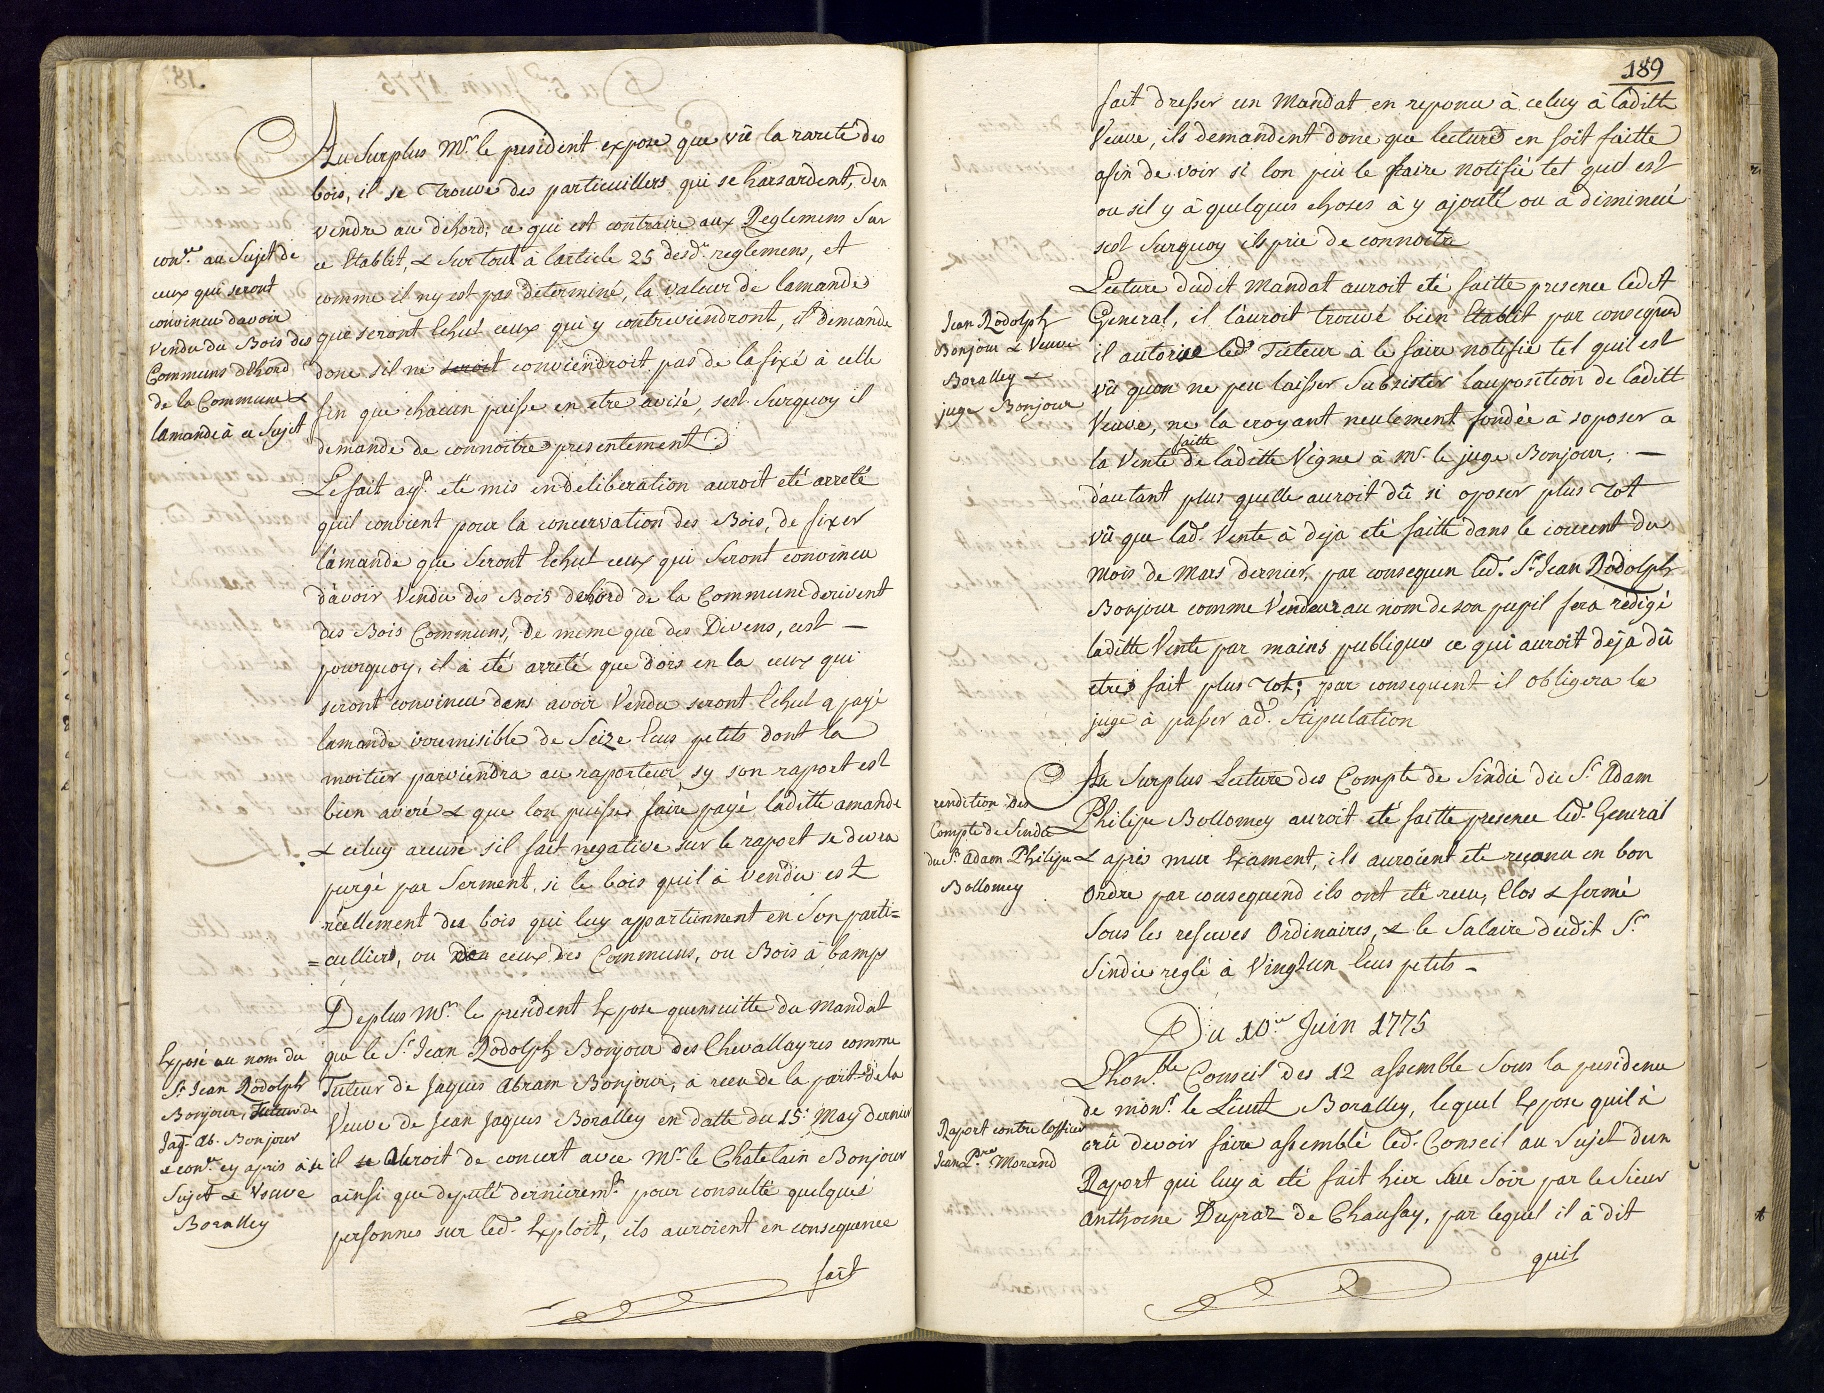 Au Surplus Mr. le president expose que vû la rareté des
bois, il se trouve des particuillers qui se harsardent, d'en
vendre au déhord; ce qui est contraire aux Reglemens Sur
con.re au Sujet de
ceux qui seront
convincu davoir
Vendu du Bois des
Communs dehord
de la Commune &
lamande à ce Sujet
ce Etablit, & Sur tout à larticle 25 desd.t reglemens, et
comme il ny est pas déterminé, la valeur de lamande
que seront Echut ceux qui y contreviendront, il demande
donc sil ne seroit conviendroit pas de la fixé à celle
fin que chacun puisse en etre avisé, sest Surquoy il
demande de connoitre presentement
Le fait ayt. eté mis en deliberation auroit été arreté
quil convient pour la concervation des Bois, de fixer
lámande que Seront Echut ceux qui Seront convincu
dávoir Vendu des Bois dehord de la Commune derivent
des Bois Communs, De meme que des Devens, cest —
pourquoy, il à eté arreté que dors en la ceux qui
seront convincu dens avoir Vendu seront Echut a payé
lamande iremisible de Seize Ecus petits dont la
moitier parviendra au raporteur sy son raport est
bien averé & que lon puisse faire payé laditte amande
& celuy acusé sil fait negative sur le raport se devra
purgé par Serment, si le bois quil à Vendu est
réellement des bois qui luy appartiennent en Son parti=
=cullier, ou des ceux des Communs, ou Bois à bamps
Deplus Mr. le president Expose quensuitte du Mandat
Exposé au nom du
Sr. Jean Rodolph
Bonjour, Tuteur de
Jaq. Ab. Bonjour
& con.re cy apris à se
Sujet & Veuve
Boralley
que le Sr. Jean Rodolph Bonjour des Chevallayres comme
Tuteur de Jaques Abram Bonjour, à recu de la part de la
Veuve de Jean Jaques Boralley en datte du 15.e May dernier
il se Auroit de concert avec Mr. le Chatelain Bonjour
ainsi que deputé dernierem.t pour consulté quelques
personnes sur led.t Exploit, ils auroient en consequence
fait
189
fait dresser un Mandat en reponce à celuy à laditte
Veuve, ils demandent donc que lecture en soit faitte
afin de voir si lon peu le faire Notifié tel quil est
ou sil y à quelques choses à y ajouté ou à dimineué
sest Surquoy ils prie de connoitre
Lecture dudit Mandat auroit eté faitte presence ledit
Jean Rodolph
Bonjour & Veuve
Boralley &
juge Bonjour
General, il l'auroit trouvé bien Etablit par consequend
il autorise led.t Tuteur à le faire notifié tel quil est
vû quon ne peu laisser Subsister lauposition de laditt
Veuve, ne la croyant neulement fondée à soposer a
la Vente faitte de laditte Vigne à Mr. le juge Bonjour, —
dautant plus quelle auroit dû si oposer plus tot
vû que lad.t Vente à deja eté faitte dans le courent du
Mois de Mars dernier, par consequen led.t Sr. Jean Rodolph
Bonjour comme Vendeur au nom de son pupil fera rédigé
laditte Vente par mains publiques ce qui auroit deja dû
etre fait plus tot; par consequent il obligera le
juge à passer ad.t Stipulation
Au Surplus Lecture des Compte de Sindic du Sr. Adam
rendition des
Compte de Sindic
du Sr. Adam Philipe
Bollomey
Philipe Bollomey auroit eté faitte presence led.t General
& apres mur Exament, ils auroient eté reconu en bon
Ordre par consequend ils ont eté recu, Clos & fermé
Sous les reserves Ordinaires, & le Salaire dudit Sr.
Sindic reglé à Vingt un Ecus petits —
Du 10.e Juin 1775
Lhon.ble Conseil des 12 assemble Sous la presidence
de monsr. le Lieut.t Boralley, lequel Expose quil à
Raport contre lofficier
Jean P.re Morand
crû devoir faire assemblé led.t Conseil au Sujet d'un
Raport qui luy à eté fait hier au Soir par le Sieur
Anthoine Dupraz de Chausay, par lequel il à dit
quil